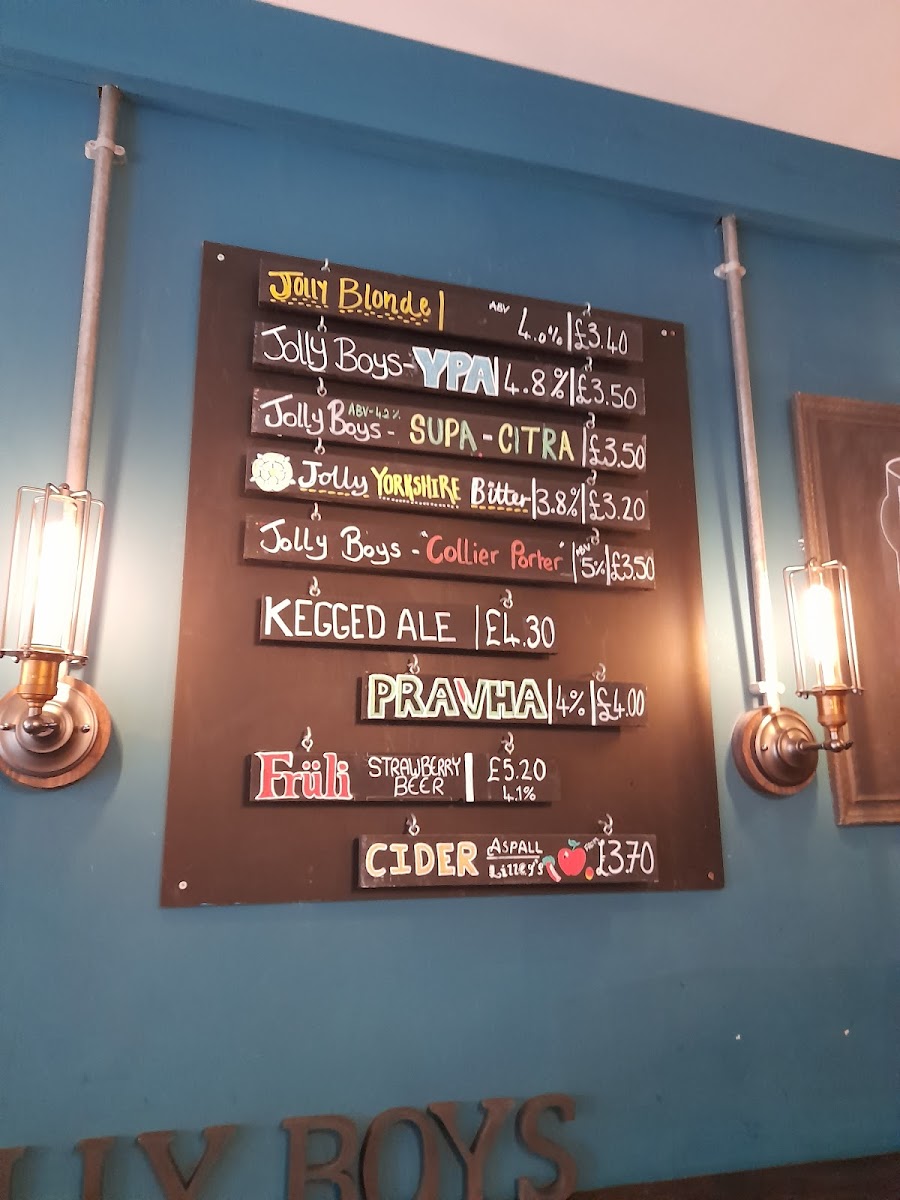 Jolly Blonde | ABV 4.0% | £3.40
Jolly Boys - YPA | 4.8% | £3.50
Jolly Boys - ABV-4.2% SUPA - CITRA | £3.50
Jolly YORKSHIRE Bitter | 3.8% | £3.20
Jolly Boys - "Collier Porter" | ABV 5% | £3.50
KEGGED ALE | £4.30
PRAVHA | 4% | £4.00
Früli STRAWBERRY BEER | £5.20 4.1%
CIDER ASPALL Lilley's £3.70
LLY BOYS